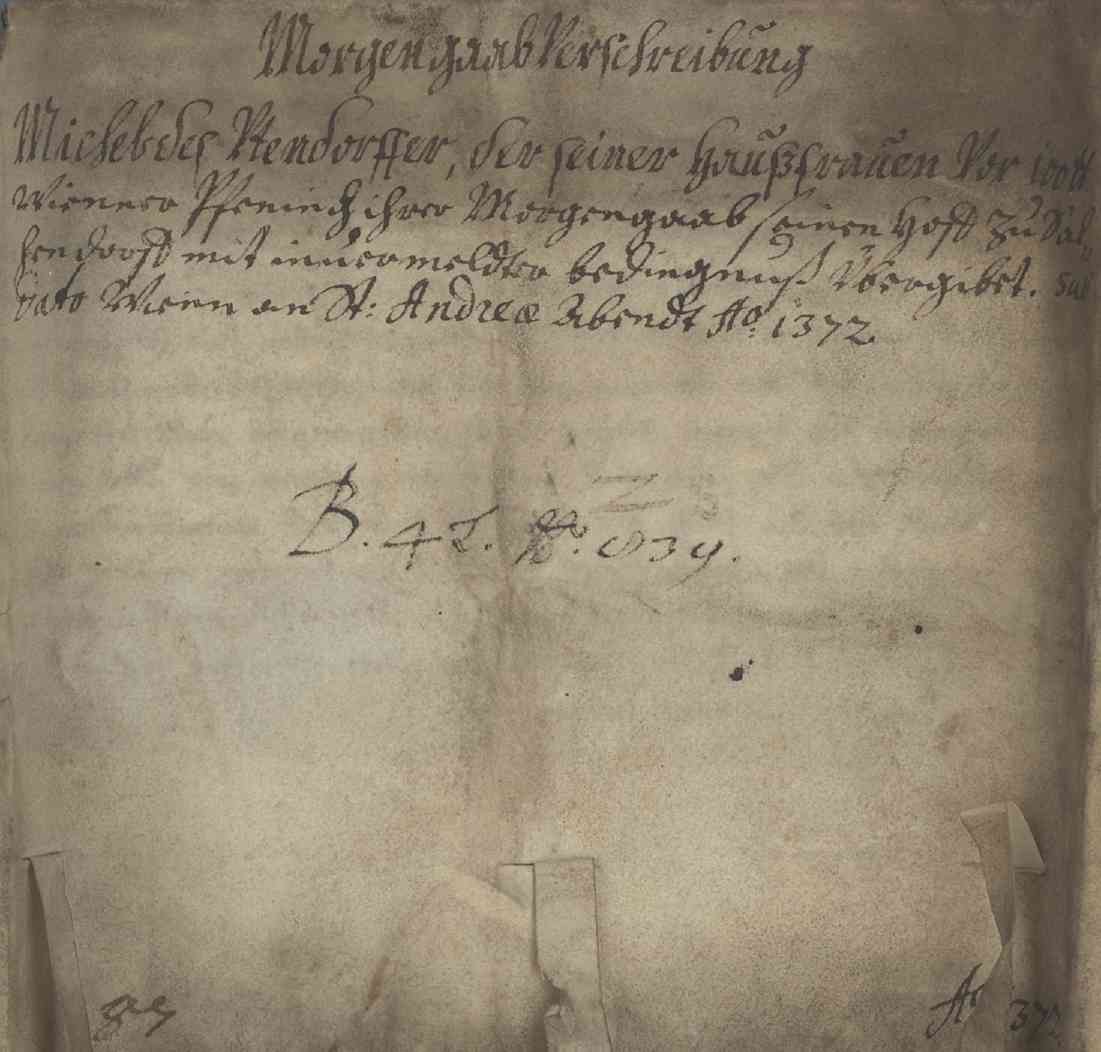 Morgengaab Verschreibung
Michels des Rendorffer, der seiner Haußfrauen Vor 100 tt
Wienner Pfeninch ihrer Morgengaab seinen Hoff zu Sal„
hendorff mit innuermeldter bedingnuß Übergibet. sub
dato Wienn an St: Andreæ Abendt Aō: 1372.
B. 42. N. 839.
Aō 372